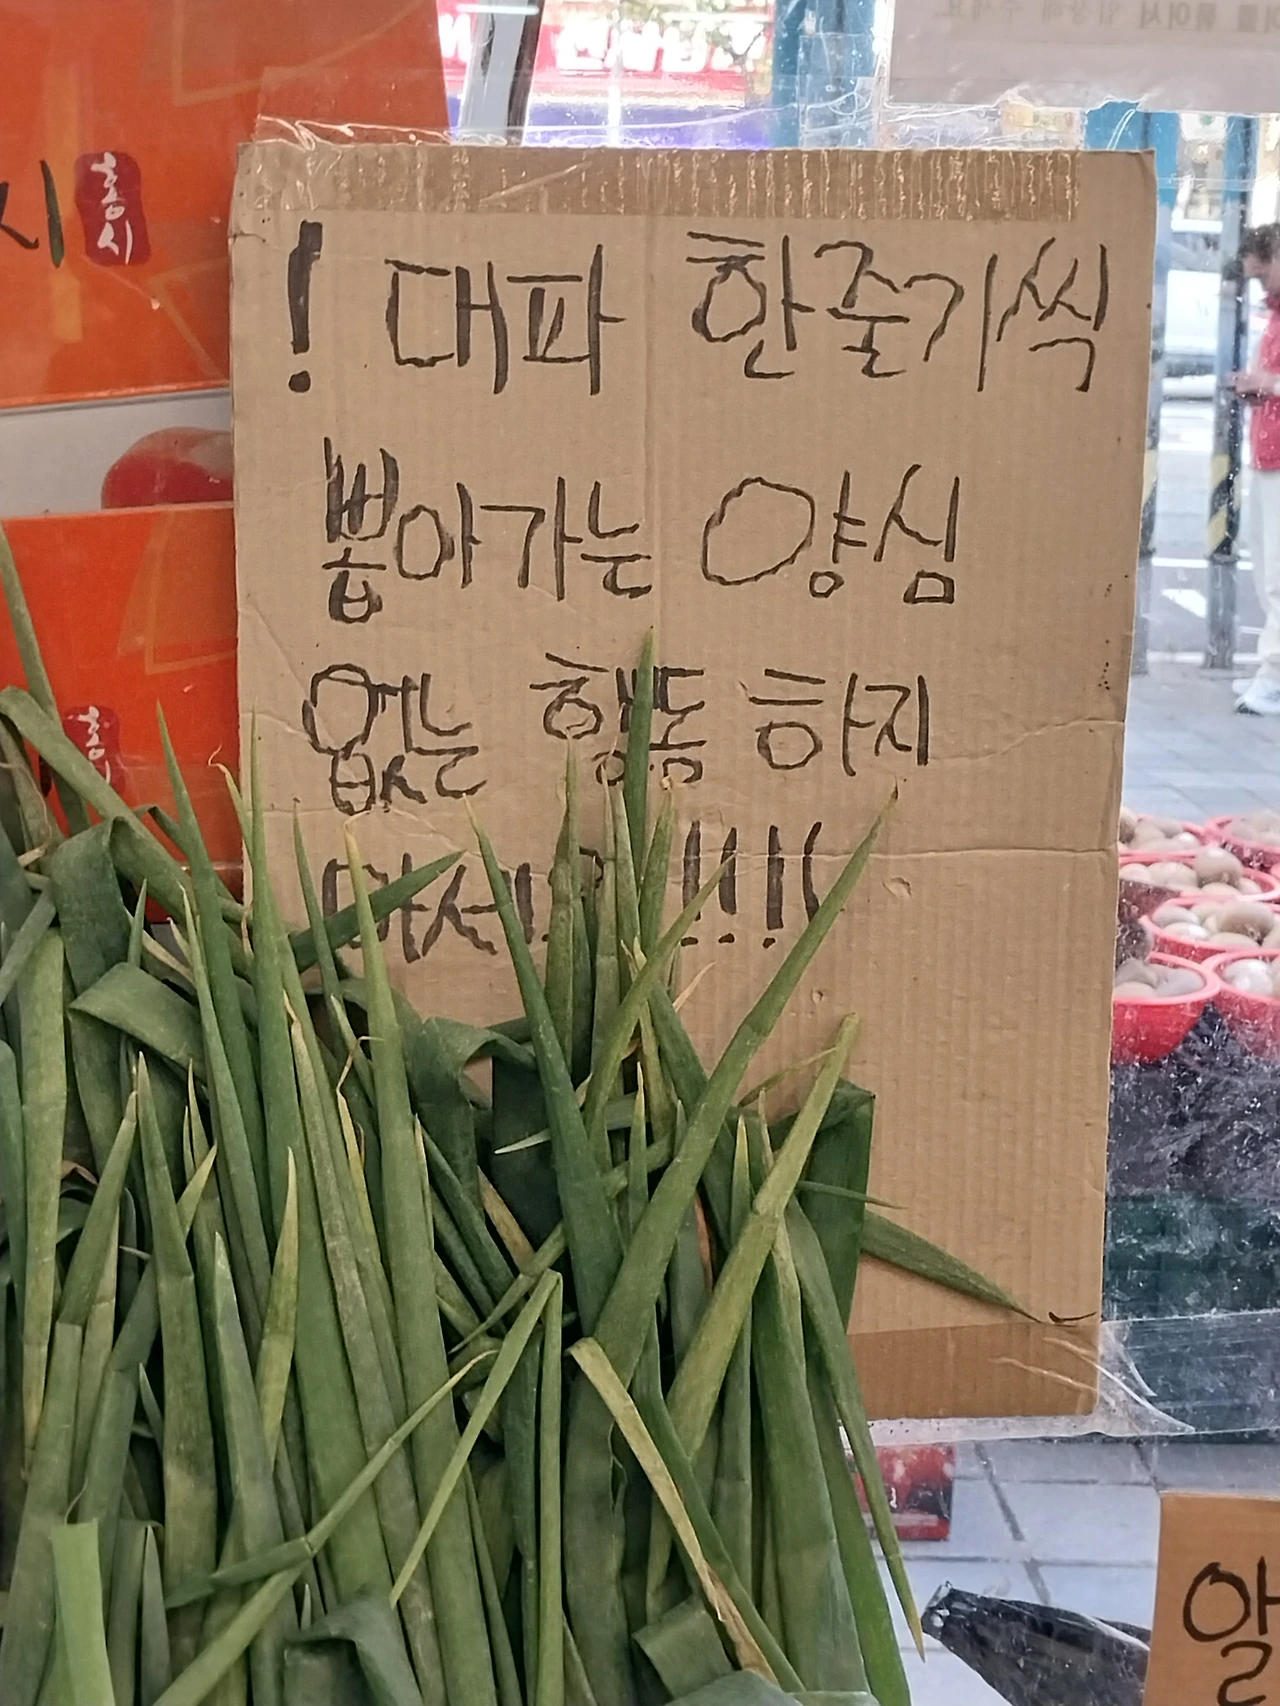 ! 대파 한줄기씩
뽑아가는 양심
없는 행동 하지
마세요 !!!!
시 홍시
홍시
알